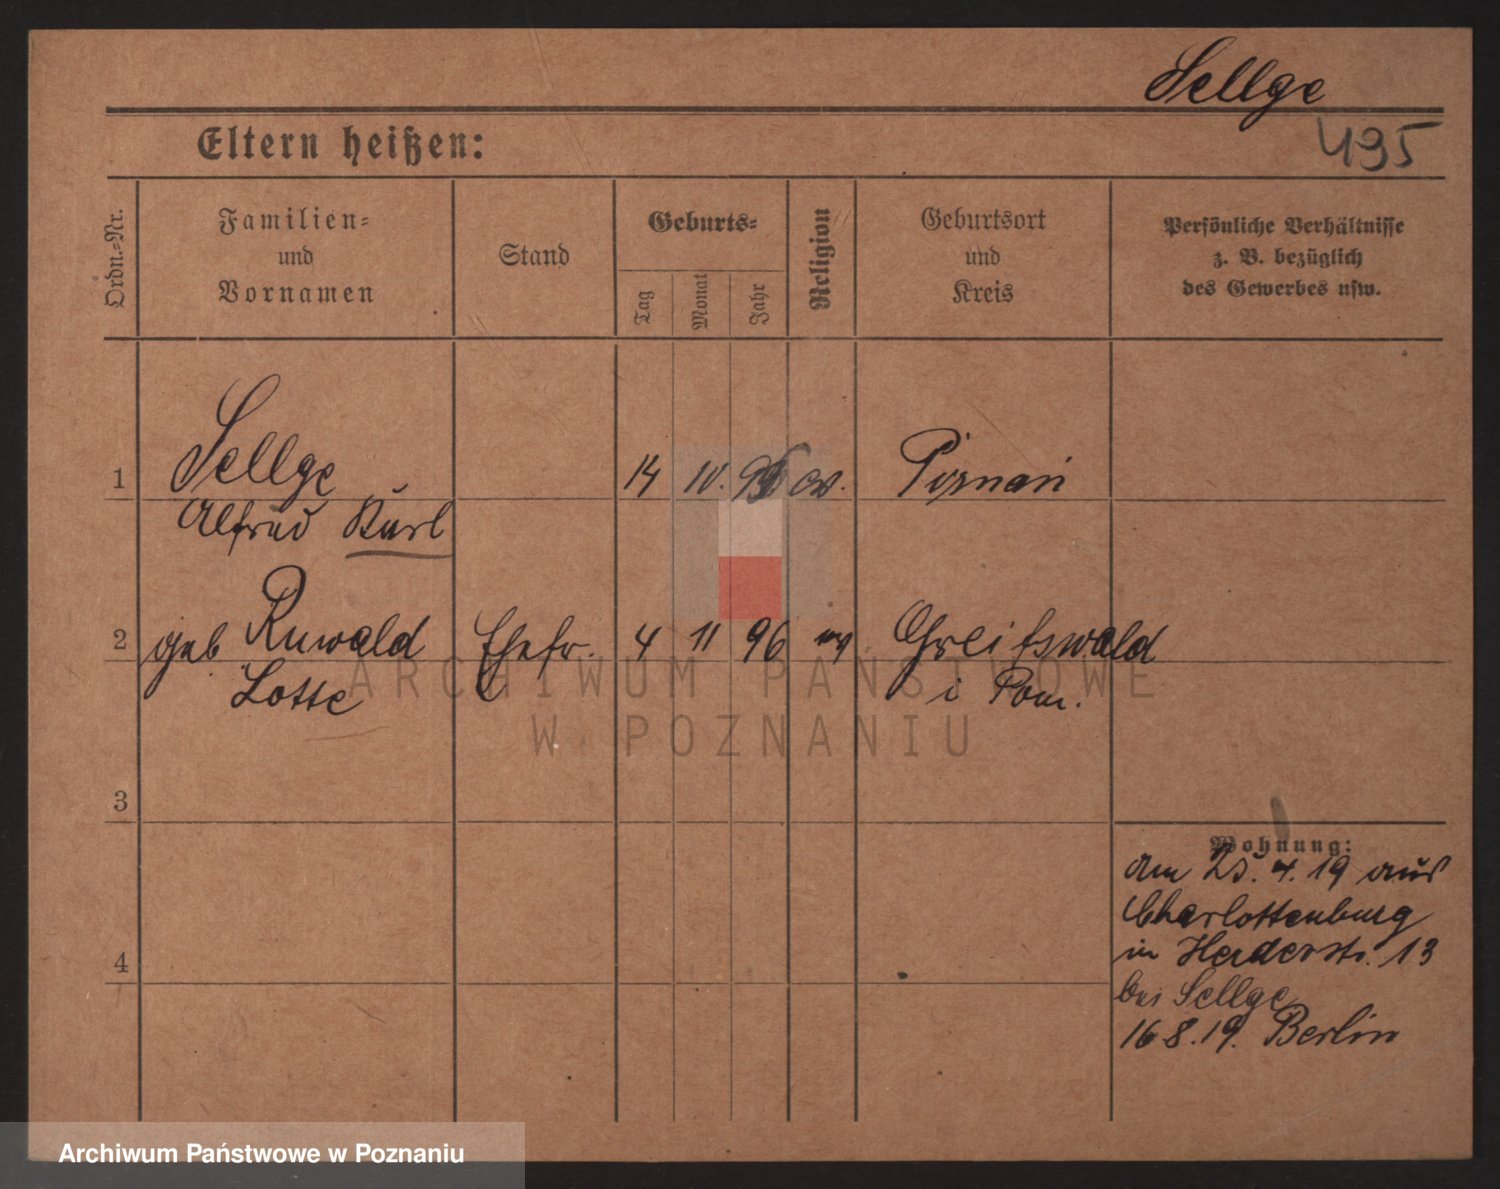 Sellge
495
Eltern heißen:
Ordn.-Nr.
Familien-
und
Vornamen
Stand
Geburts-
Tag
Monat
Jahr
Religion
Geburtsort
und
Kreis
Persönliche Verhältnisse
z. B. bezüglich
des Gewerbes usw.
1 Sellge 14 10. ev. Poznań
Alfred Kurl
2 geb Ruwald Ehefr. 4 11 96 Greifswald
Lotte i Pom.
3
4
Wohnung:
am 25. 4. 19 aus
Charlottenburg
in Herderstr. 13
bei Sellge
16 8. 19. Berlin
ARCHIWUM PAŃSTWOWE
W POZNANIU
Archiwum Państwowe w Poznaniu